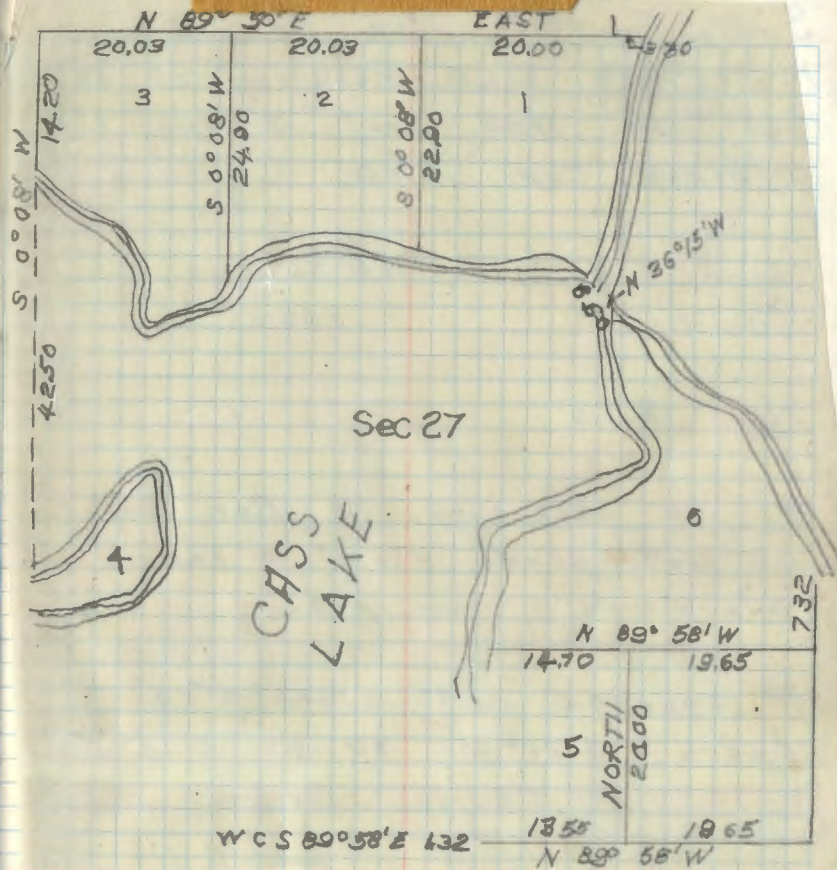 N 89° 50' E EAST
20.03 20.03 20.00
3 2 1
14.20
S 0° 08' W
24.90
S 0° 08' W
22.90
S 0° 08' W
42.50
N 36° 15' W
Sec 27
CASS
LAKE
4
6
7.32
N 89° 58' W
14.70 19.65
5
NORTH
20.00
W C S 89° 58' E 1.32
19.65
N 89° 58' W